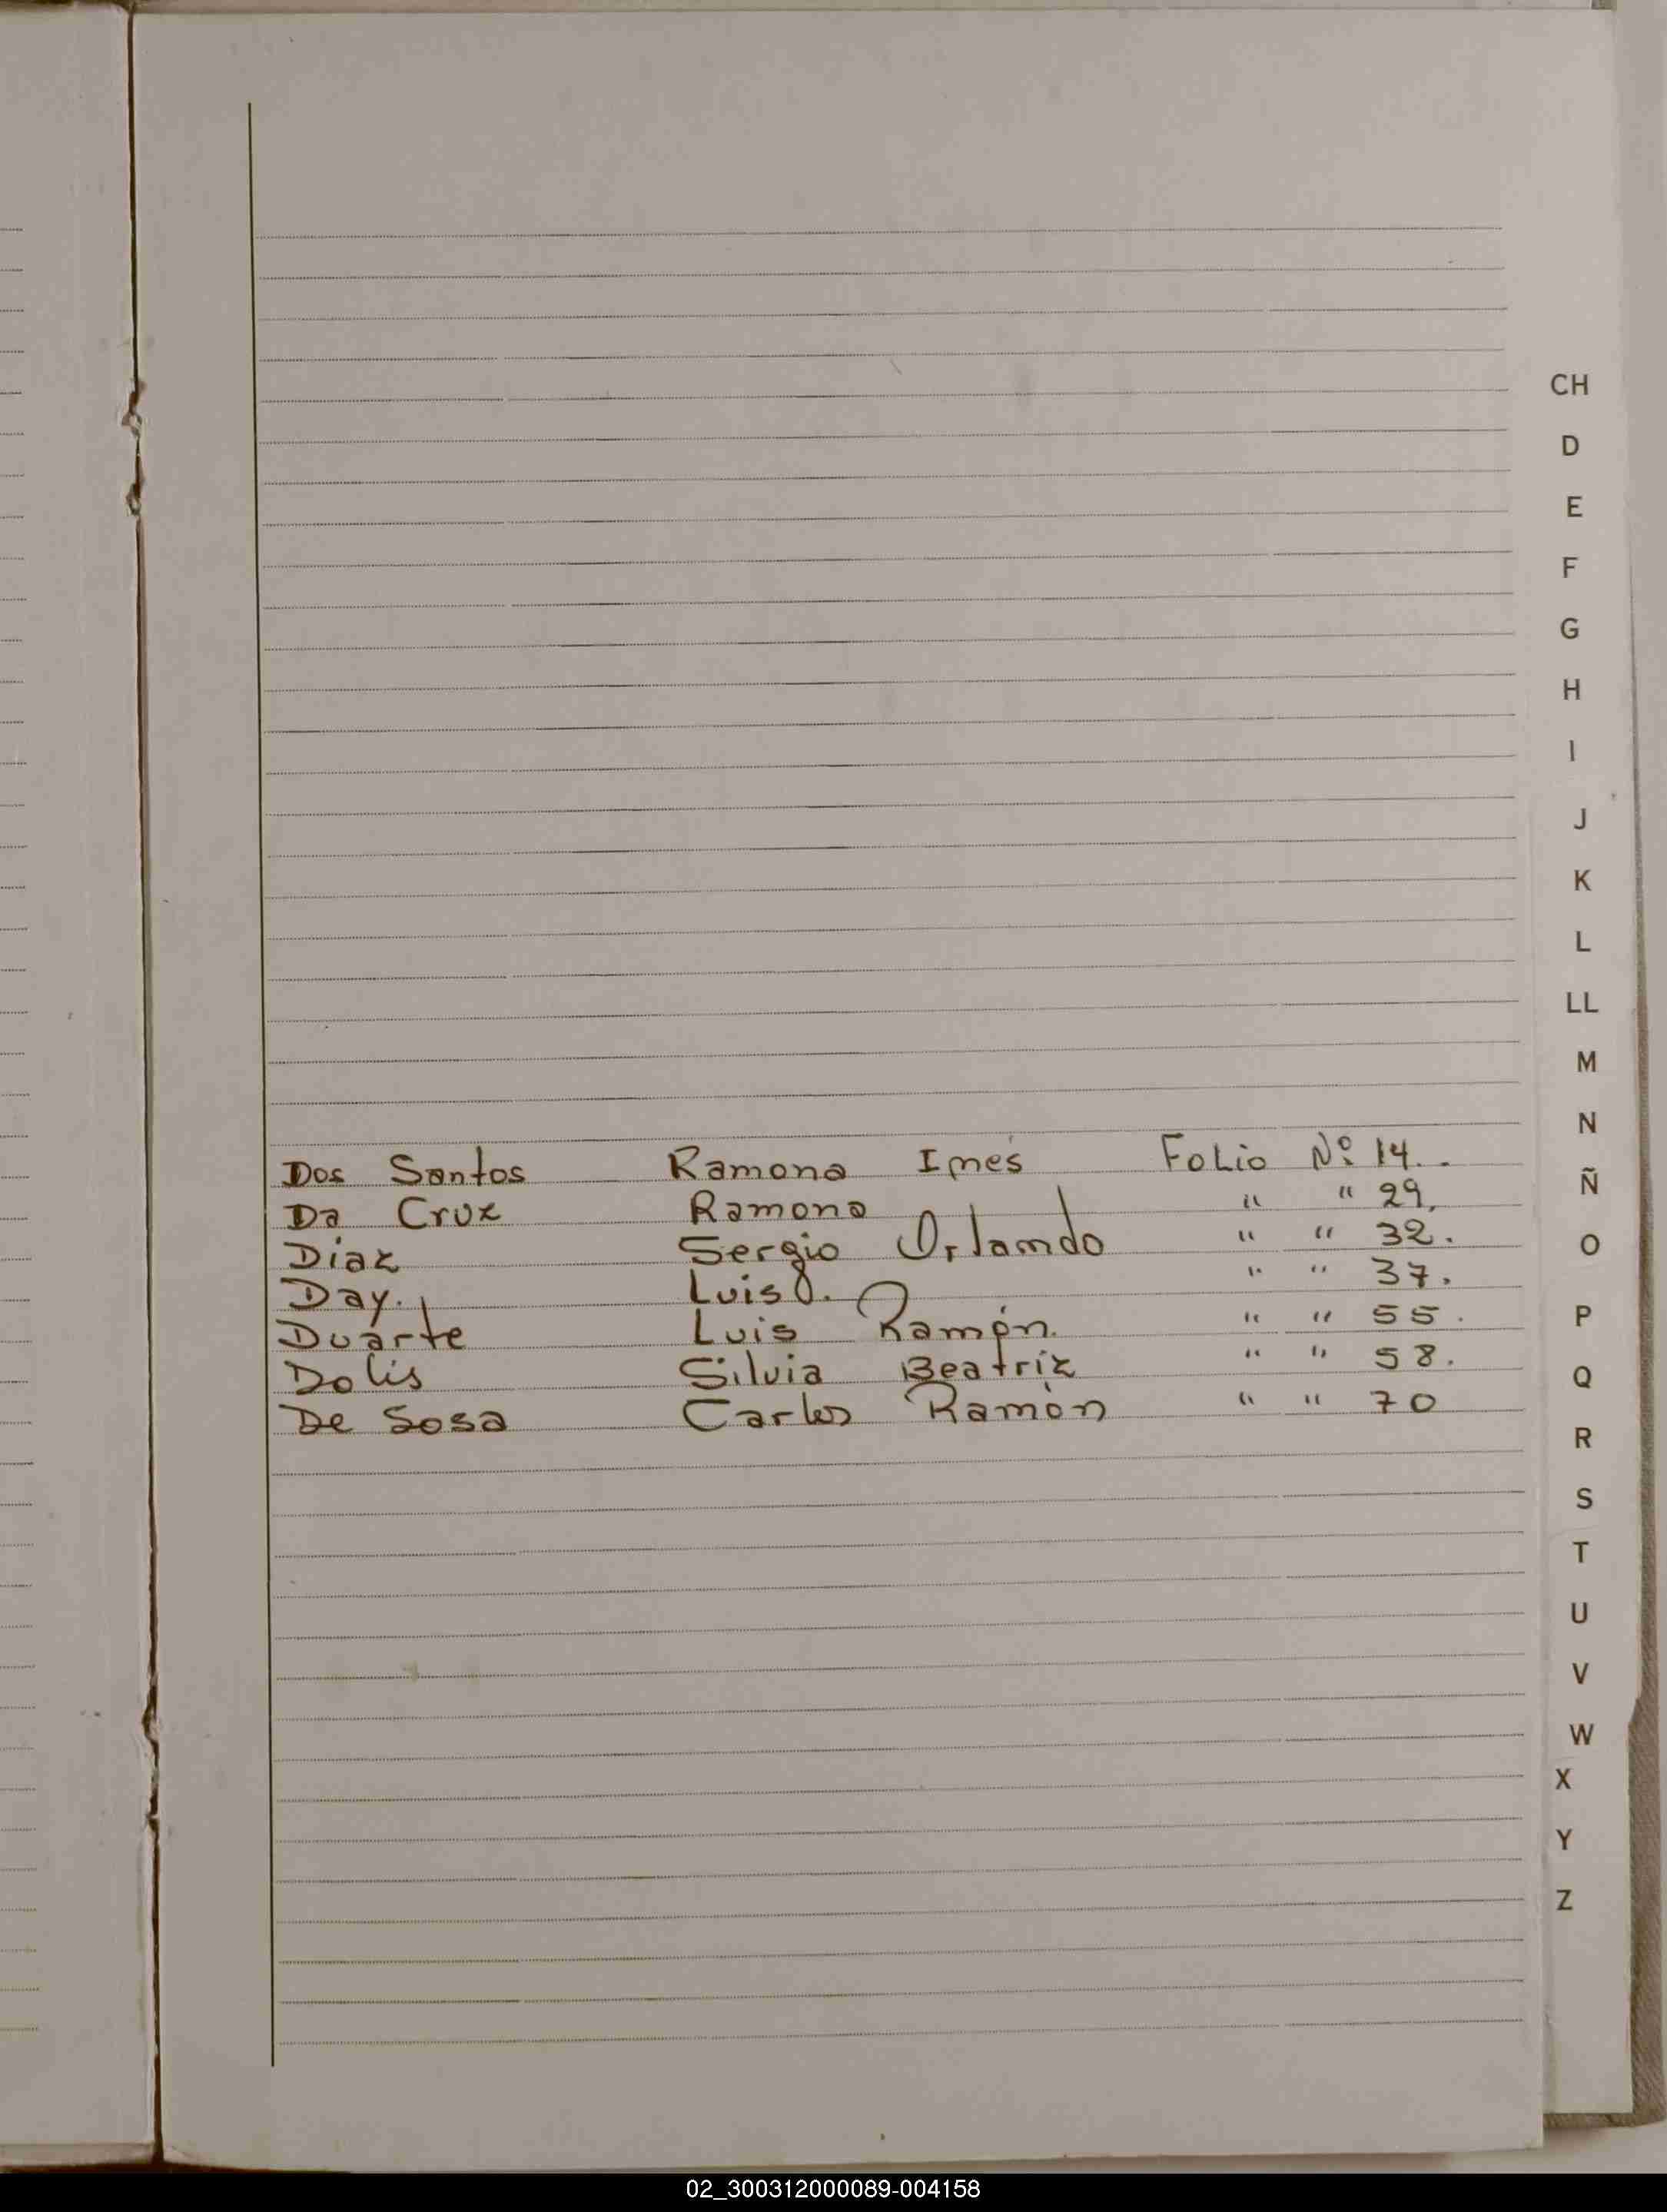 CH
D
E
F
G
H
I
J
K
L
LL
M
N
Ñ
O
P
Q
R
S
T
U
V
W
X
Y
Z
Dos Santos Ramona Inés Folio Nº 14.
Da Cruz Ramona " " 29.
Diaz Sergio Orlando " " 32.
Day. Luis O. " " 37.
Duarte Luis Ramón. " " 55.
Dolis Silvia Beatriz " " 58.
De Sosa Carlos Ramón " " 70
02_300312000089-004158